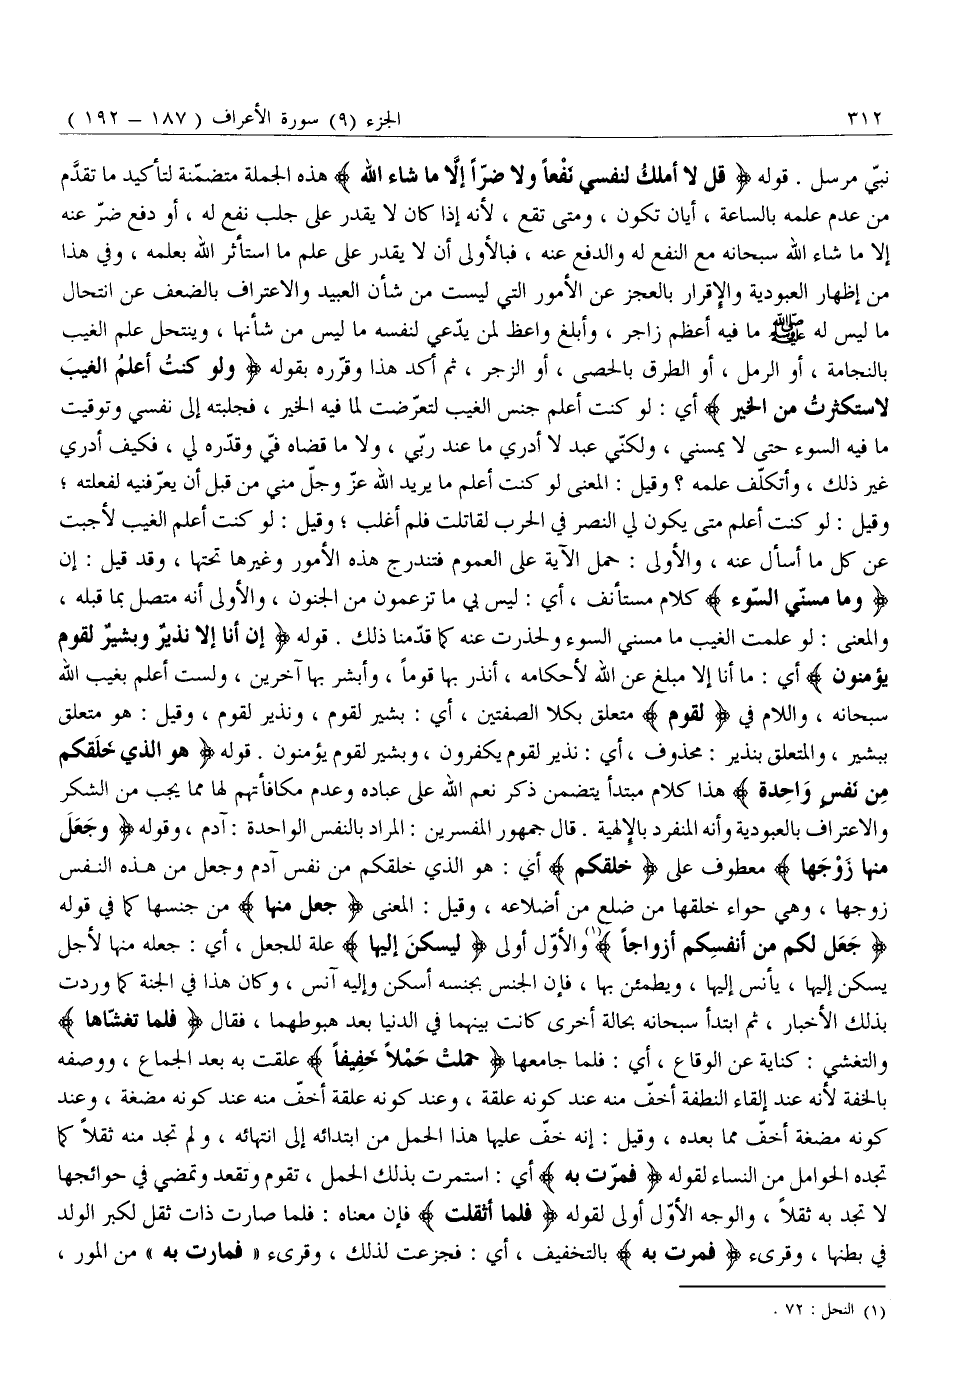 ٣١٢ الجزء (٩) سورة الأعراف ( ١٨٧ – ١٩٢ )
نبيّ مرسل . قوله ﴿ قل لا أملكُ لنفسي نَفْعاً ولا ضرّاً إلَّا ما شاء الله ﴾ هذه الجملة متضمّنة لتأكيد ما تقدَّم
من عدم علمه بالساعة ، أيان تكون ، ومتى تقع ، لأنه إذا كان لا يقدر على جلب نفع له ، أو دفع ضرّ عنه
إلا ما شاء الله سبحانه مع النفع له والدفع عنه ، فبالأولى أن لا يقدر على علم ما استأثر الله بعلمه ، وفي هذا
من إظهار العبودية والإقرار بالعجز عن الأمور التي ليست من شأن العبيد والاعتراف بالضعف عن انتحال
ما ليس له ﷺ ما فيه أعظم زاجر ، وأبلغ واعظ لمن يدّعي لنفسه ما ليس من شأنها ، وينتحل علم الغيب
بالنجامة ، أو الرمل ، أو الطرق بالحصى ، أو الزجر ، ثم أكد هذا وقرّره بقوله ﴿ ولو كنتُ أعلمُ الغيبَ
لاستكثرتُ من الخير ﴾ أي : لو كنت أعلم جنس الغيب لتعرّضت لما فيه الخير ، فجلبته إلى نفسي وتوقيت
ما فيه السوء حتى لا يمسني ، ولكنّي عبد لا أدري ما عند ربّي ، ولا ما قضاه فيّ وقدّره لي ، فكيف أدري
غير ذلك ، وأتكلّف علمه ؟ وقيل : المعنى لو كنت أعلم ما يريد الله عزّ وجلّ مني من قبل أن يعرّفنيه لفعلته ؛
وقيل : لو كنت أعلم متى يكون لي النصر في الحرب لقاتلت فلم أغلب ؛ وقيل : لو كنت أعلم الغيب لأجبت
عن كل ما أسأل عنه ، والأولى : حمل الآية على العموم فتندرج هذه الأمور وغيرها تحتها ، وقد قيل : إن
﴿ وما مسنّي السّوء ﴾ كلام مستأنف ، أي : ليس بي ما تزعمون من الجنون ، والأولى أنه متصل بما قبله ،
والمعنى : لو علمت الغيب ما مسني السوء ولحذرت عنه كما قدّمنا ذلك . قوله ﴿ إن أنا إلا نذيرٌ وبشيرٌ لقوم
يؤمنون ﴾ أي : ما أنا إلا مبلغ عن الله لأحكامه ، أنذر بها قوماً ، وأبشر بها آخرين ، ولست أعلم بغيب الله
سبحانه ، واللام في ﴿ لقوم ﴾ متعلق بكلا الصفتين ، أي : بشير لقوم ، ونذير لقوم ، وقيل : هو متعلق
ببشير ، والمتعلق بنذير : محذوف ، أي : نذير لقوم يكفرون ، وبشير لقوم يؤمنون . قوله ﴿ هو الذي خلَقكم
مِن نَفسٍ وَاحِدة ﴾ هذا كلام مبتدأ يتضمن ذكر نعم الله على عباده وعدم مكافأتهم لها مما يجب من الشكر
والاعتراف بالعبودية وأنه المنفرد بالإلهية . قال جمهور المفسرين : المراد بالنفس الواحدة : آدم ، وقوله ﴿ وجَعَلَ
منها زَوْجَها ﴾ معطوف على ﴿ خلقكم ﴾ أي : هو الذي خلقكم من نفس آدم وجعل من هذه النفس
زوجها ، وهي حواء خلقها من ضلع من أضلاعه ، وقيل : المعنى ﴿ جعل منها ﴾ من جنسها كما في قوله
﴿ جَعَل لكم من أنفسِكم أزواجاً ﴾(١) والأوّل أولى ﴿ ليسكنَ إليها ﴾ علة للجعل ، أي : جعله منها لأجل
يسكن إليها ، يأنس إليها ، ويطمئن بها ، فإن الجنس بجنسه أسكن وإليه آنس ، وكان هذا في الجنة كما وردت
بذلك الأخبار ، ثم ابتدأ سبحانه بحالة أخرى كانت بينهما في الدنيا بعد هبوطهما ، فقال ﴿ فلما تغشّاها ﴾
والتغشي : كناية عن الوقاع ، أي : فلما جامعها ﴿ حملتْ حَمْلاً خَفِيفاً ﴾ علقت به بعد الجماع ، ووصفه
بالخفة لأنه عند إلقاء النطفة أخفّ منه عند كونه علقة ، وعند كونه علقة أخفّ منه عند كونه مضغة ، وعند
كونه مضغة أخفّ مما بعده ، وقيل : إنه خفّ عليها هذا الحمل من ابتدائه إلى انتهائه ، ولم تجد منه ثقلاً كما
تجده الحوامل من النساء لقوله ﴿ فمرّت به ﴾ أي : استمرت بذلك الحمل ، تقوم وتقعد وتمضي في حوائجها
لا تجد به ثقلاً ، والوجه الأوّل أولى لقوله ﴿ فلما أثقلت ﴾ فإن معناه : فلما صارت ذات ثقل لكبر الولد
في بطنها ، وقرىء ﴿ فمرت به ﴾ بالتخفيف ، أي : فجزعت لذلك ، وقرىء « فمارت به » من المور ،
(١) النحل : ٧٢ .